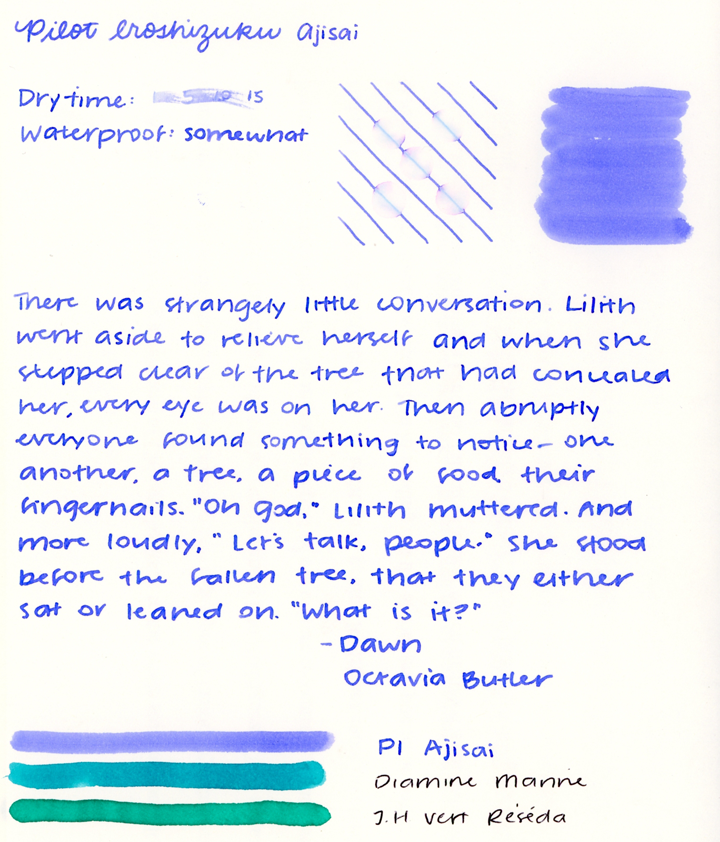 Pilot Iroshizuku Ajisai
Dry time: 5 10 15
Waterproof: somewhat
There was strangely little conversation. Lilith
went aside to relieve herself and when she
stepped clear of the tree that had concealed
her, every eye was on her. Then abruptly
everyone found something to notice - one
another, a tree, a piece of food, their
fingernails. "Oh god," Lilith muttered. And
more loudly, "Let's talk, people." She stood
before the fallen tree, that they either
sat or leaned on. "What is it?"
- Dawn
Octavia Butler
PI Ajisai
Diamine Marine
J.H Vert Réséda